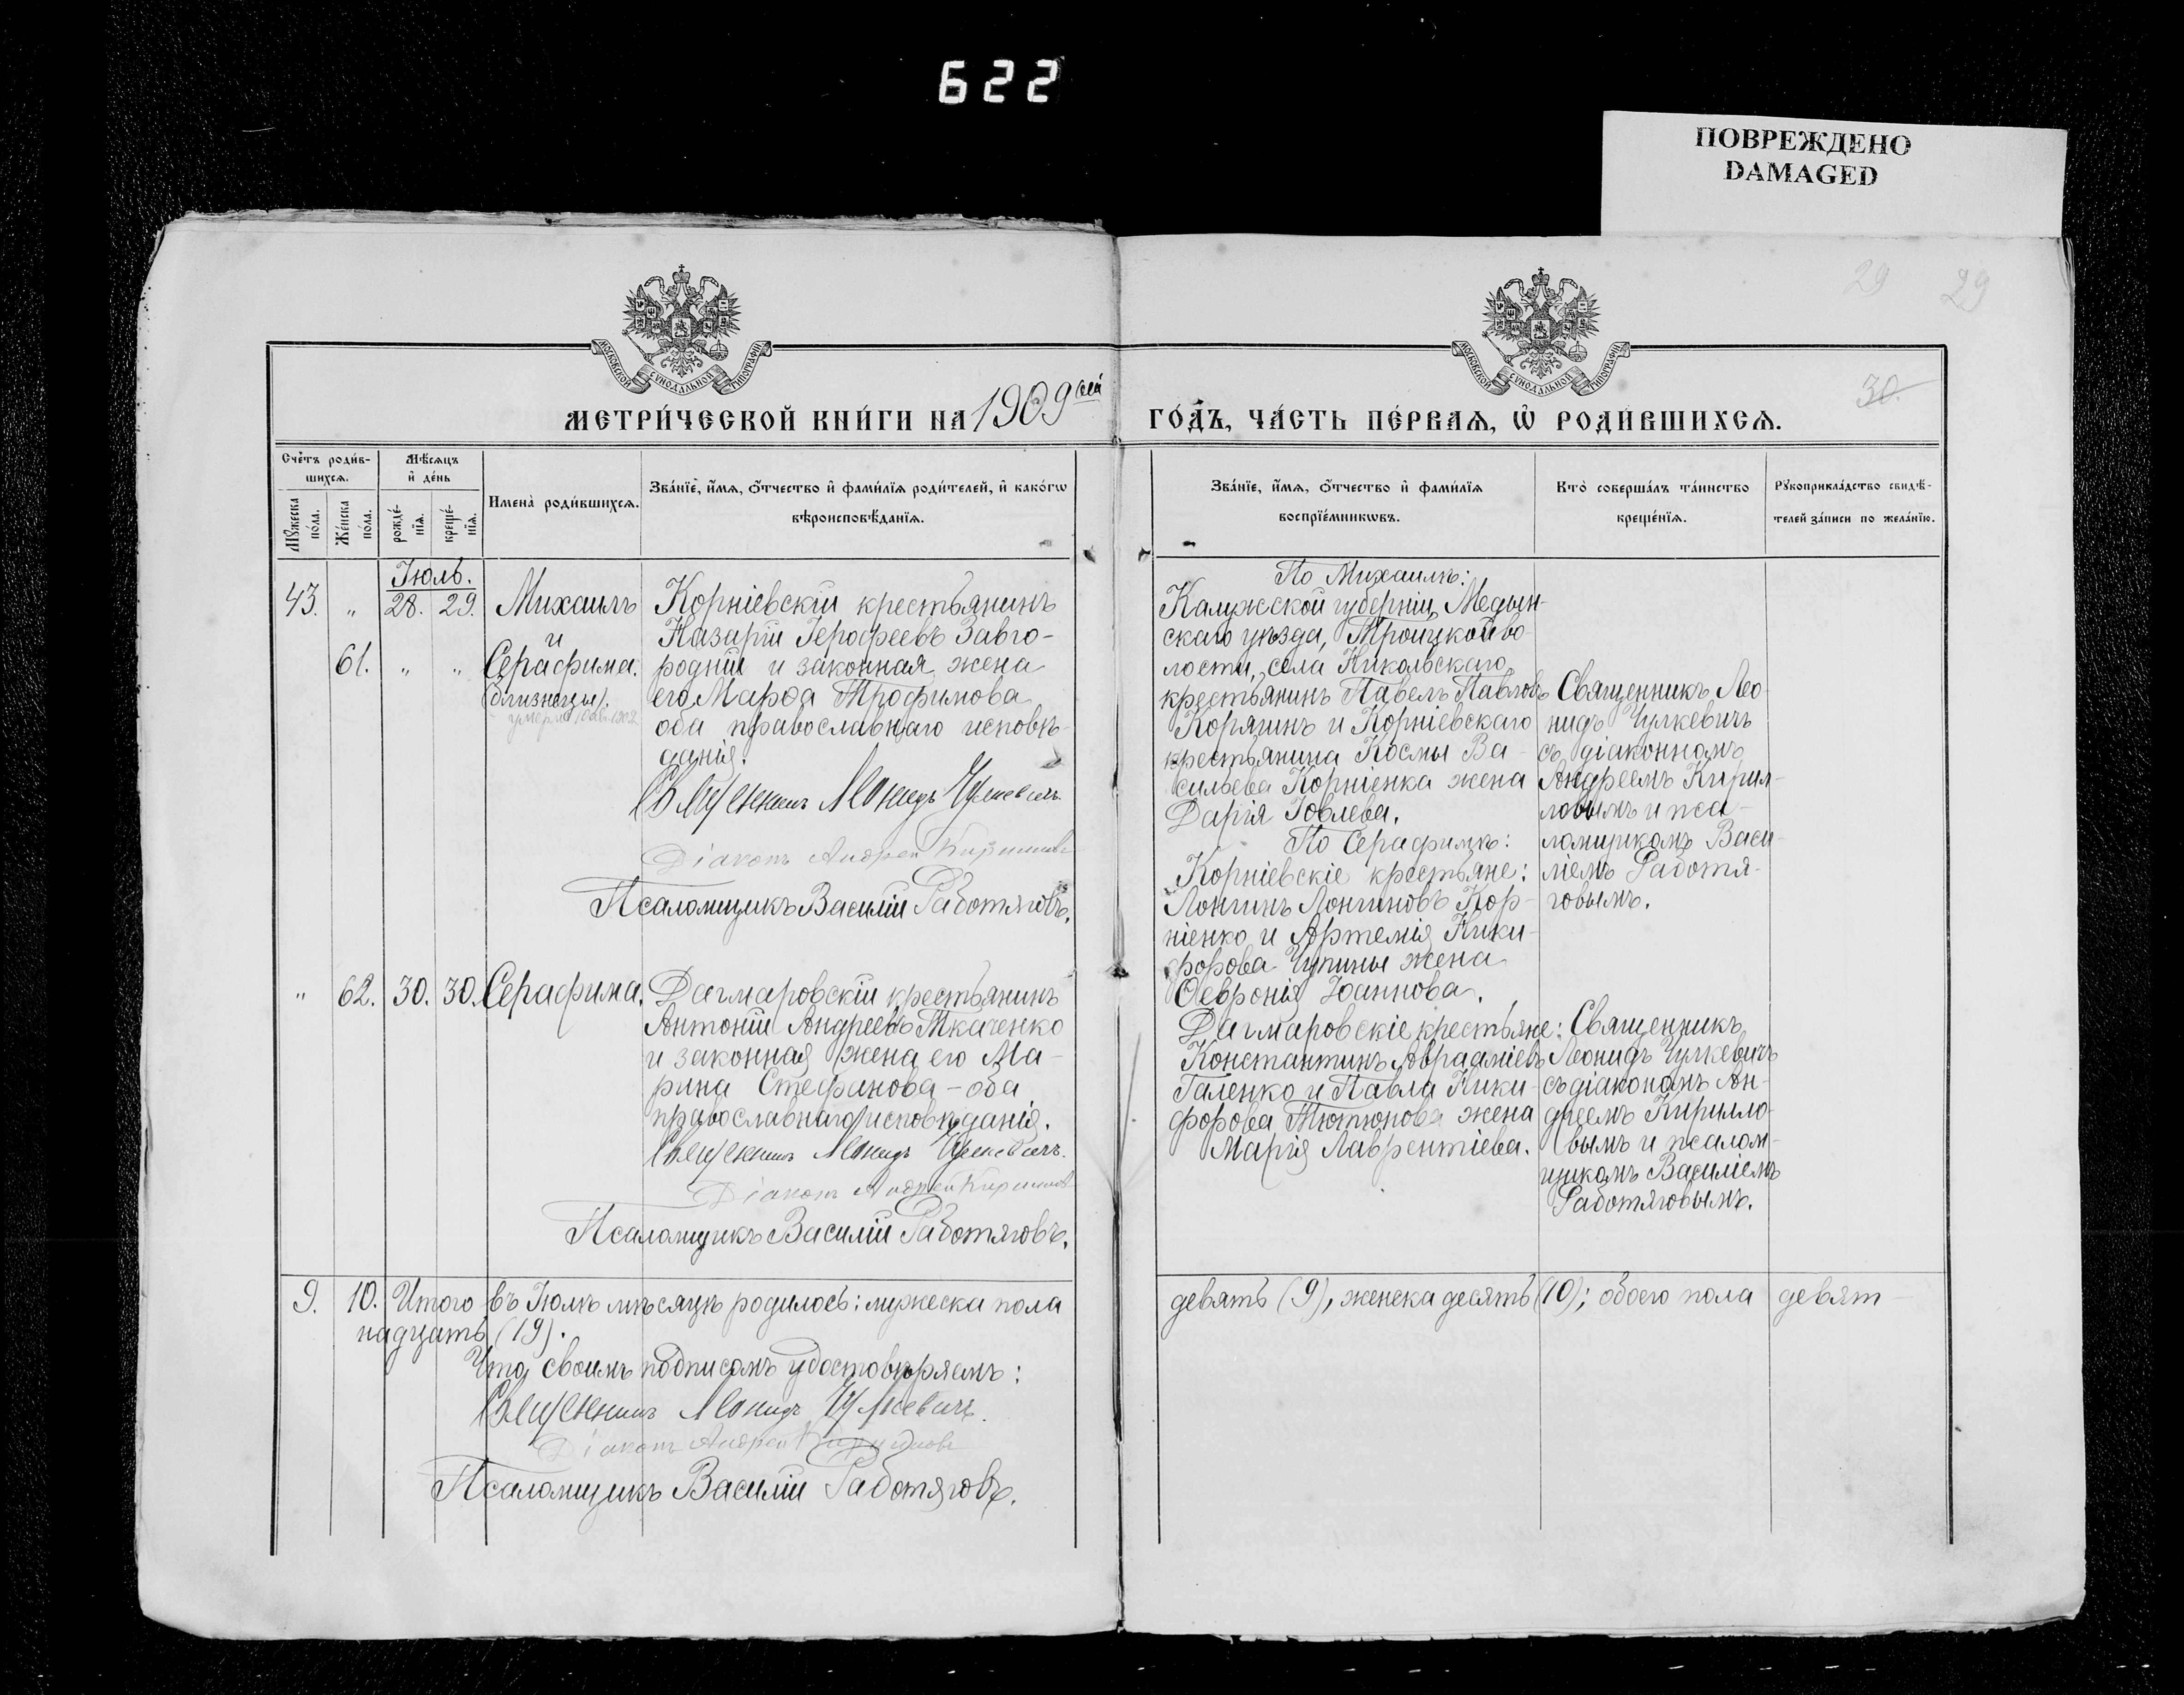 622
ПОВРЕЖДЕНО
DAMAGED
29 29
30.
МОСКОВСКОЙ СѴНОДАЛЬНОЙ ТИПОГРАФІИ
МОСКОВСКОЙ СѴНОДАЛЬНОЙ ТИПОГРАФІИ
МЕТРИ́ЧЕСКОЙ КНИ́ГИ НА 1909
ГО́ДЪ, ЧА́СТЬ ПЕ́РВАѦ, Ѡ҆ РОДИ́ВШИХСѦ.
Сче́тъ роди́в-
шихсѧ.
Мꙋ́жеска по́ла.
Же́нска по́ла.
Мѣ́сѧцъ
и҆ де́нь
рожде́-
нїѧ.
креще́-
нїѧ.
Имена̀ роди́вшихсѧ.
Зва́нїе, и҆́мѧ, ѻ҆́тчество и҆ фами́лїѧ роди́телей, и҆ како́гѡ
вѣроисповѣ́данїѧ.
Зва́нїе, и҆́мѧ, ѻ҆́тчество и҆ фами́лїѧ
воспрїе́мникѡвъ.
Кто̀ соверша́лъ та́инство
креще́нїѧ.
Рꙋкоприкла́дство свидѣ́-
телей за́писи по жела́нїю.
Іюль.
43. " 28. 29. Михаилъ
и
61. " " Серафима.
(близнецы).
Корніевскій крестьянинъ
Назарій Іерофеевъ Завго-
родній и законная жена
его Марѳа Трофимова
оба православнаго исповѣ-
данія.
Священникъ Леонидъ Чулкевичъ.
Діаконъ Андрей Кирилловъ
Псаломщикъ Василій Работяговъ.
По Михаилѣ:
Калужской губерніи, Медын-
скаго уѣзда, Троицкой во-
лости, села Никольскаго
крестьянинъ Павелъ Павловъ
Корягинъ и Корніевскаго
крестьянина Космы Ва-
сильева Корніенка жена
Дарія Іовлева.
По Серафимѣ:
Корніевскіе крестьяне:
Лонгинъ Лонгиновъ Кор-
ніенко и Артемія Ники-
форова Чупины жена
Ѳевронія Іоаннова.
Священникъ Лео-
нидъ Чулкевичъ
съ діаконномъ
Андреемъ Кирил-
ловымъ и пса-
ломщикомъ Васи-
ліемъ Работя-
говымъ.
" 62. 30. 30. Серафима.
Дагмаровскій крестьянинъ
Антоній Андреевъ Ткаченко
и законная жена его Ма-
рина Стефанова - оба
православнаго исповѣданія.
Священникъ Леонидъ Чулкевичъ.
Діаконъ Андрей Кирилловъ
Псаломщикъ Василій Работяговъ.
Дагмаровскіе крестьяне:
Константинъ Авраамiевъ
Галенко и Павла Ники-
форова Тютюнова жена
Марія Лаврентіева.
Священникъ
Леонидъ Чулкевичъ
съ діакономъ Ан-
дреемъ Кирилло-
вымъ и псалом-
щикомъ Василіемъ
Работяговымъ.
9. 10. Итого въ Іюлѣ мѣсяцѣ родилось: мужеска пола девять (9), женска десять (10); обоего пола девят-
надцать (19).
Что своимъ подписомъ удостовѣряемъ:
Священникъ Леонидъ Чулкевичъ.
Діаконъ Андрей Кирилловъ
Псаломщикъ Василій Работяговъ.